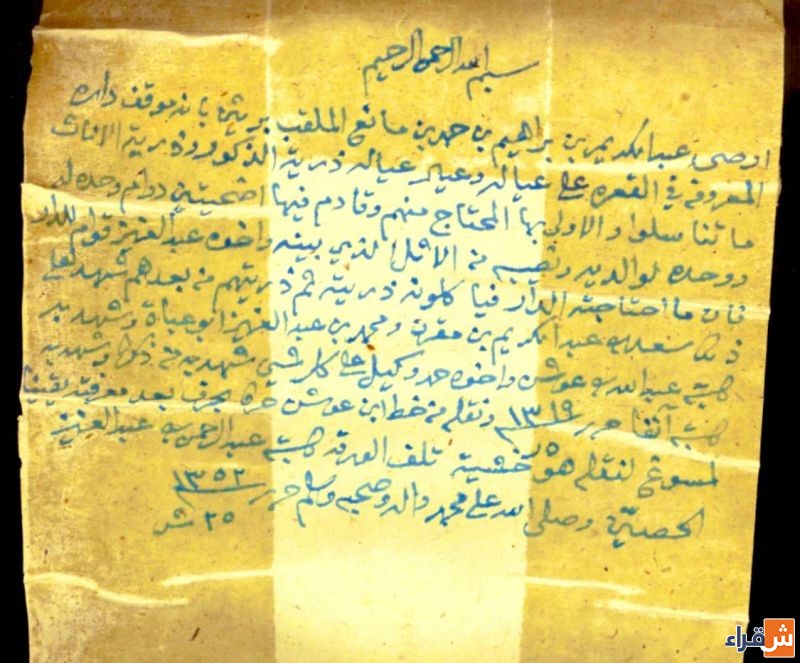 بسم الله الرحمن الرحيم
اوصى عبد الكريم بن براهيم بن حمد بن مانع الملقب بريثن بانه موقف داره
المعروفه في القعره على عياله وعيال عياله ذرية الذكور وذرية الاناث
ما تناسلوا والاولى بها المحتاج منهم وقادم فيها اضحيتين دوام وحده له
ووحده لوالديه ونصيبه من الاثل الذي بينه واخوه عبد العزيز قوام للدار
فان ما احتاجته الدار فيا كلونه ذريته ثم ذريتهم من بعدهم شهد على
ذلك عبد الكريم بن مقرن ومحمد بن عبد العزيز ابو عباة وشهد به
كتبه عبد الله بن عوشن واخوه حمد وكيل على كل شي شهد به من ذكر وشهد به
كتبه آنفا حرر ١٣١٩ ونقله من خط ابن عوشن حرف بحرف بعد معرفته يقينا
لمسوغ لنقله هو خشية تلف الورقه كتبه عبد الرحمن بن عبد العزيز
الحصيّن وصلى الله على محمد واله وصحبه وسلم حرر ١٣٥٢
٢٥ ش
شقراء